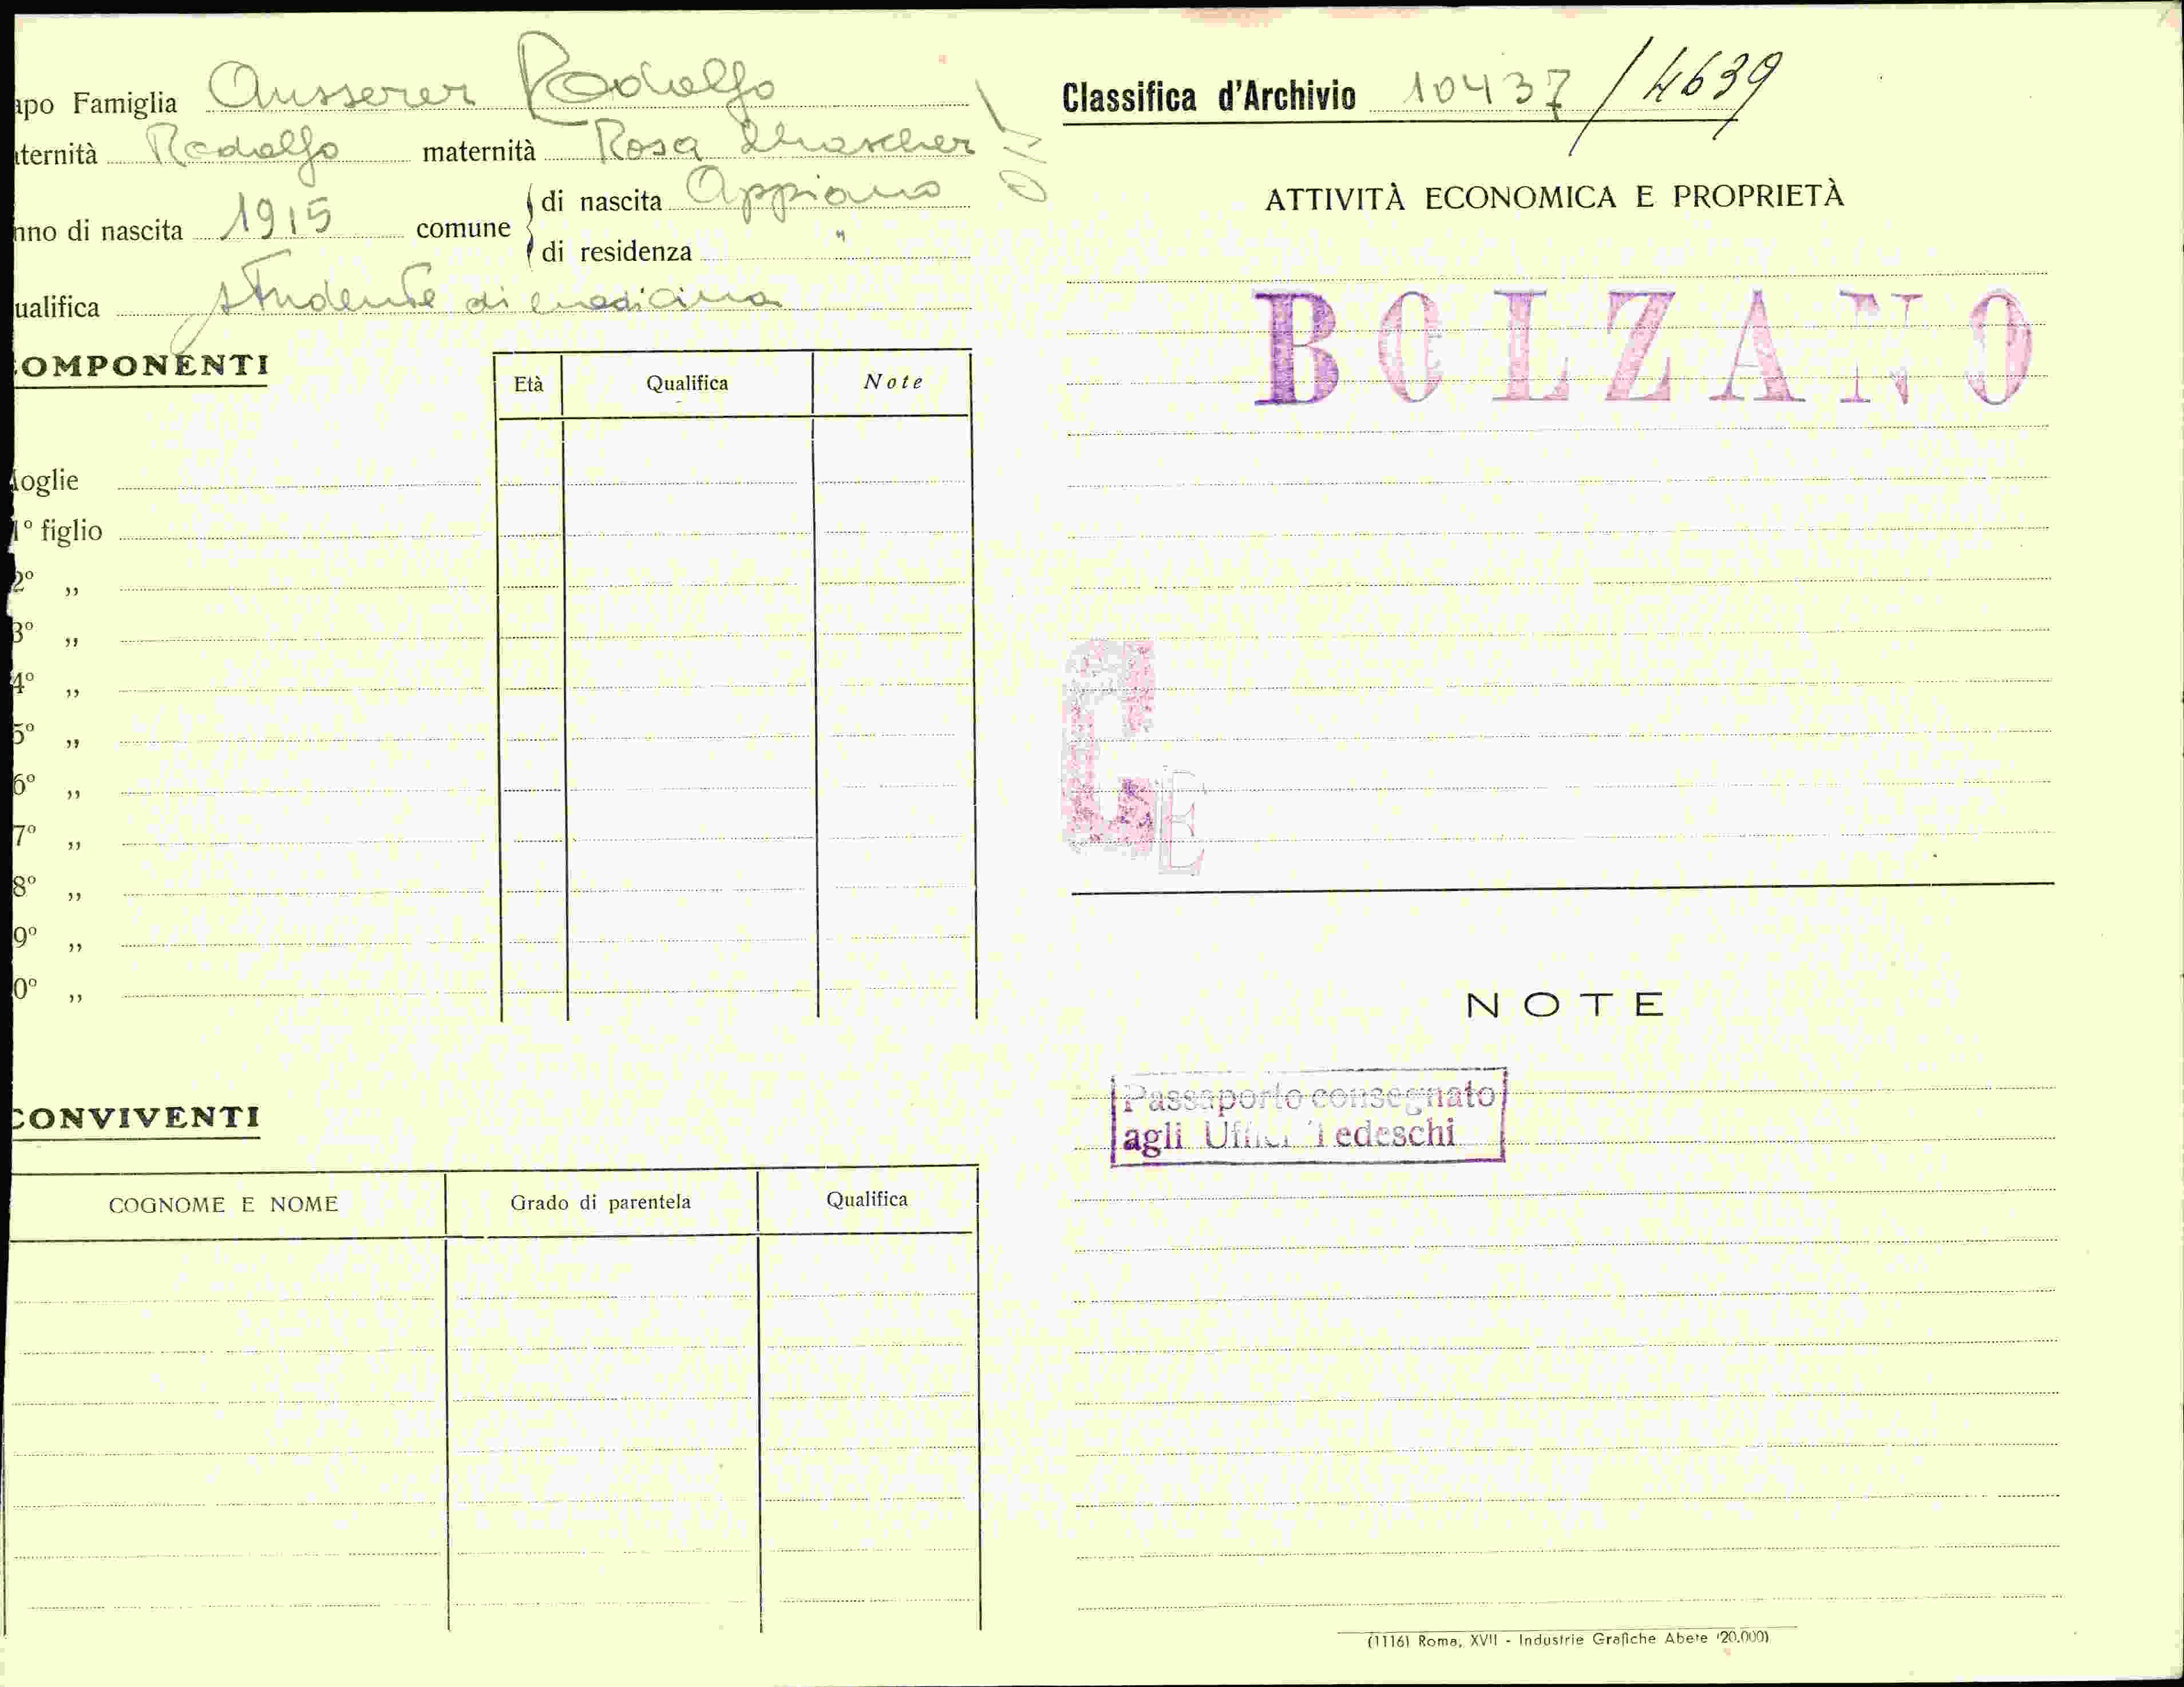 apo Famiglia Ausserer Rodolfo
ternità Rodolfo maternità Rosa
nno di nascita 1915 comune di nascita Appiano
di residenza "
ualifica studente di medicina
COMPONENTI
Età Qualifica Note
Moglie
1° figlio
2° ,,
3° ,,
4° ,,
5° ,,
6° ,,
7° ,,
8° ,,
9° ,,
0° ,,
CONVIVENTI
COGNOME E NOME Grado di parentela Qualifica
Classifica d'Archivio 10437 / 4639
ATTIVITÀ ECONOMICA E PROPRIETÀ
BOLZANO
G
E
NOTE
Passaporto consegnato
agli Uffici Tedeschi
(1116) Roma, XVII - Industrie Grafiche Abete (20.000)